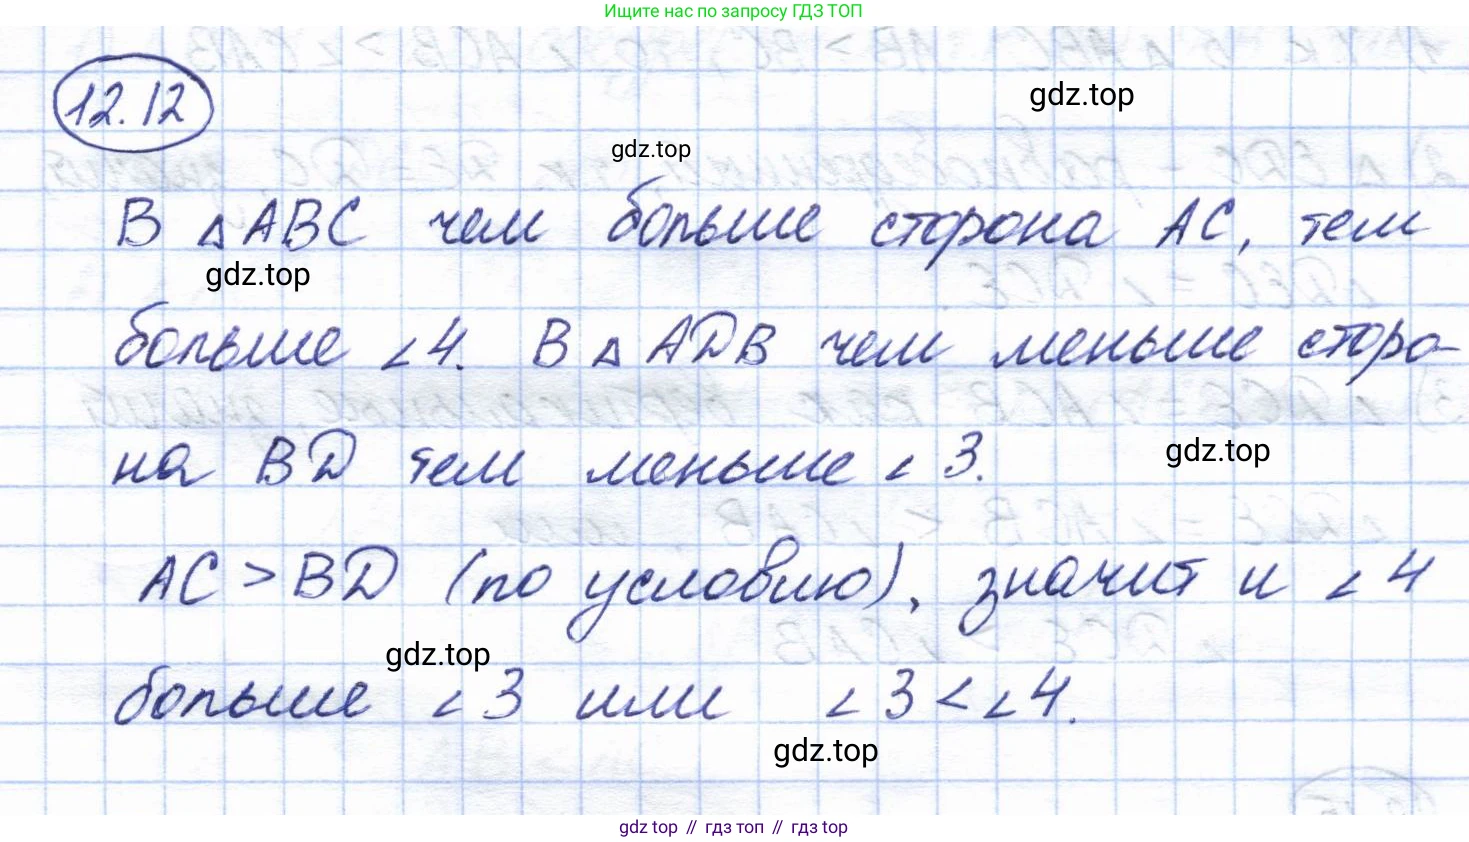 Ищите нас по запросу ГДЗ ТОП
12.12
gdz.top
gdz.top
В △ABC чем больше сторона AC, тем
gdz.top
больше ∠4. В △ADB чем меньше сторо-
на BD тем меньше ∠3.
gdz.top
AC > BD (по условию), значит и ∠4
gdz.top
больше ∠3 или ∠3 < ∠4.
gdz.top
gdz top // гдз топ // гдз top